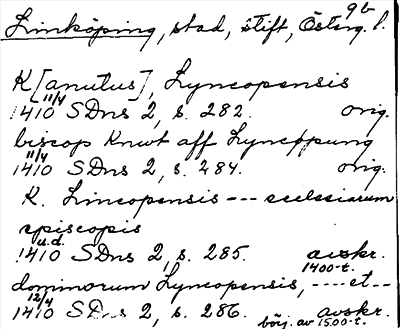 9b
Linköping, stad, stift, Österg. l.
K[anutus], Lyncopensis
11/4
1410 SDns 2, s. 282. orig.
biscop Knwt aff Lyncøpung
11/4
1410 SDns 2, s. 284. orig.
K. Lincopensis --- ecclesiarum
episcopis
u.d.
1410 SDns 2, s. 285. avskr.
1400-t.
dominorum Lyncopensis, ----et--
12/4
1410 SDns 2, s. 286. avskr.
börj. av 1500-t.